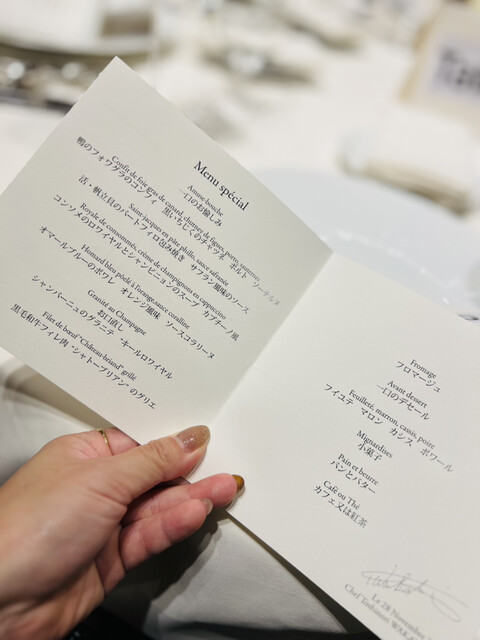 Menu spécial
Amuse-bouche
一口のお愉しみ
Confit de foie gras de canard, chutney de figue, porto, sauternes
鴨のフォワグラのコンフィ 黒いちじくのチャツネ ポルト ソーテルヌ
Saint-jacques en pâte philo, sauce safranée
活・帆立貝のパートフィロ包み焼き サフラン風味のソース
Royale de consommés, crème de champignons en cappuccino
コンソメのロワイヤルとシャンピニョンのスープ カプチーノ風
Homard bleu poêlé à l'orange, sauce coralline
オマールブルーのポワレ オレンジ風味 ソースコラリーヌ
Granité au Champagne
お口直し
シャンパーニュのグラニテ “キールロワイヤル
Filet de bœuf “Château-briand” grillé
黒毛和牛フィレ肉 “シャトーブリアン” のグリエ
Fromage
フロマージュ
Avant dessert
一口のデセール
Feuilleté, marron, cassis, poire
フィユテ マロン カシス ポワール
Mignardises
小菓子
Pain et beurre
パンとバター
Café ou Thé
カフェ又は紅茶
Le 28 Novembre
Chef